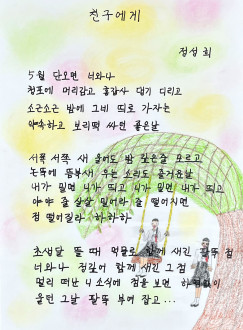 친구에게
정성희
5월 단오면 너와나
창포에 머리감고 홍갑사 댕기 디리고
소근소근 밤에 그네 뛰로 가자는
약속하고 보리떡 싸던 좋은날
서쪽 새 울어도 밤 깊은줄 모르고
논뚝에 뜸부새 우는 소리도 즐거운날
내가 밀면 니가 뛰고 니가 밀면 내가 뛰고
아야 줄 살살 밀어라 줄 떨어지면
점 떨어질라 하하하
초생달 뜰 때 먹물로 함께 새긴 팔뚝 점
너와나 정깊이 함께 새긴 그 점
멀리 떠난 니 소식에 점을 보면 하염없이
울던 그날 팔뚝 부여 잡고...